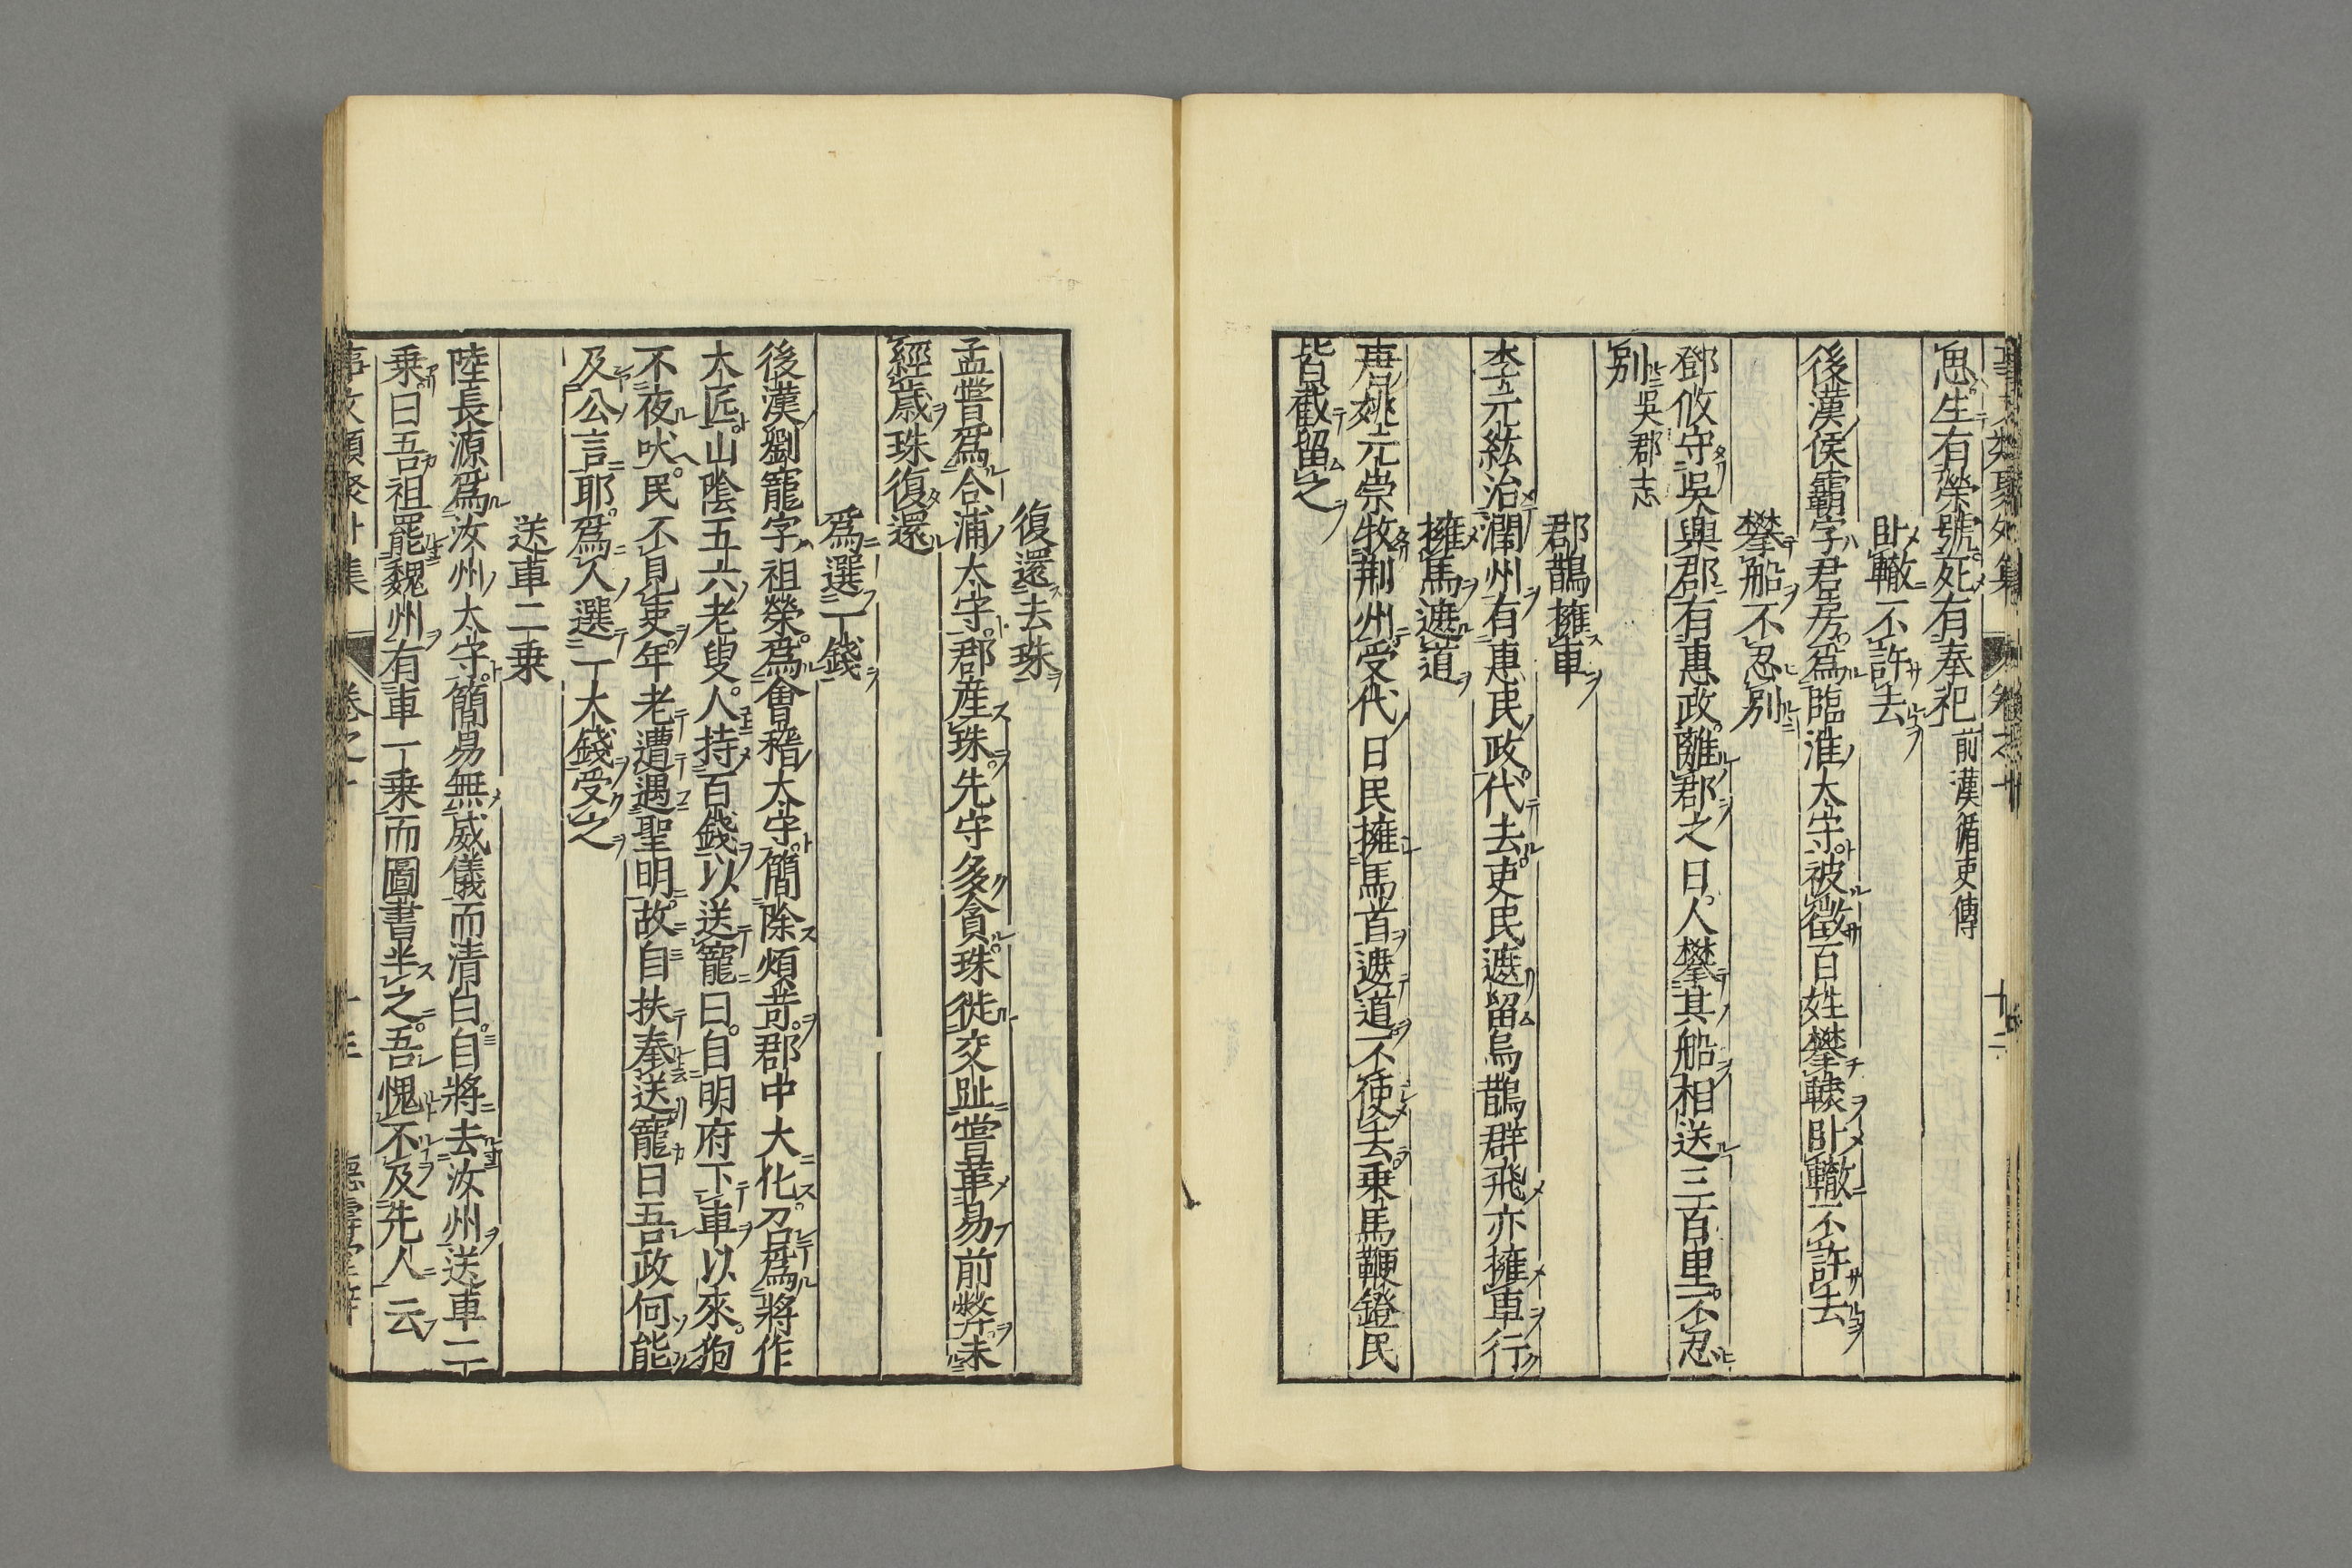 思生有榮號死有奉祀前漢循吏傳
卧轍不許去
後漢侯霸字君房爲臨淮太守被徵百姓攀轅卧轍不許去
攀船不忍別
鄧攸守吳興郡有惠政離郡之日人攀其船相送三百里不忍
別吳郡志
郡鵲擁車
李元紘治潤州有惠民政代去吏民遮留烏鵲群飛亦擁車行
擁馬遮道
唐姚元崇牧荆州受代日民擁馬首遮道不使去乗馬鞭鐙民
皆截留之
復還去珠
孟嘗爲合浦太守郡産珠先守多貪珠徙交趾嘗革易前弊未
經歳珠復還
爲選一錢
後漢劉寵字祖榮爲會稽太守簡除煩苛郡中大化召爲將作
大匠山陰五六老叟人持百錢以送寵曰自明府下車以來狗
不夜吠民不見吏年老遭遇聖明故自扶奉送寵曰吾政何能
及公言耶爲人選一大錢受之
送車二乗
陸長源爲汝州太守簡易無威儀而清白自將去汝州送車二
乗曰吾祖罷魏州有車一乗而圖書半之吾愧不及先人云